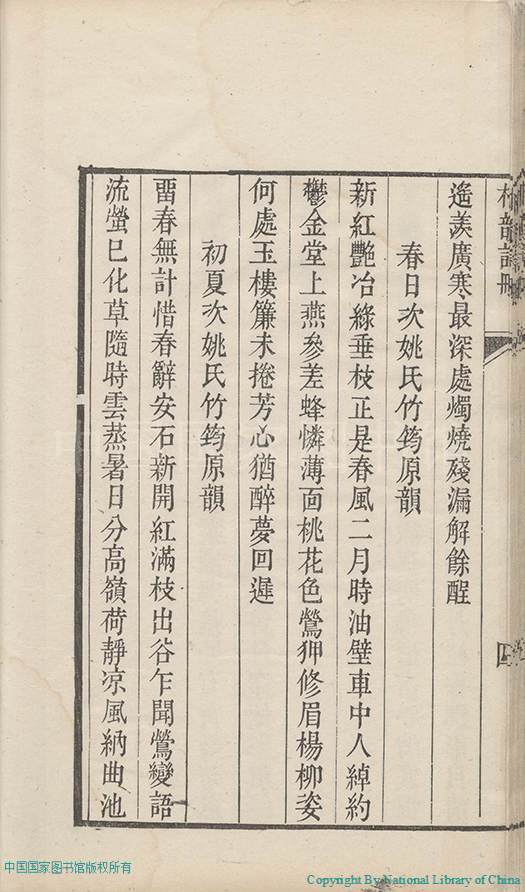 遙羨廣寒最深處燭燒殘漏解餘酲
春日次姚氏竹筠原韻
新紅艷冶綠垂枝正是春風二月時油壁車中人綽約
鬱金堂上燕參差蜂憐薄面桃花色鶯狎修眉楊柳姿
何處玉樓簾未捲芳心猶醉夢回遲
初夏次姚氏竹筠原韻
畱春無計惜春辭安石新開紅滿枝出谷乍聞鶯變語
流螢已化草隨時雲蒸暑日分高嶺荷靜凉風納曲池
中国国家图书馆版权所有
Copyright By National Library of China